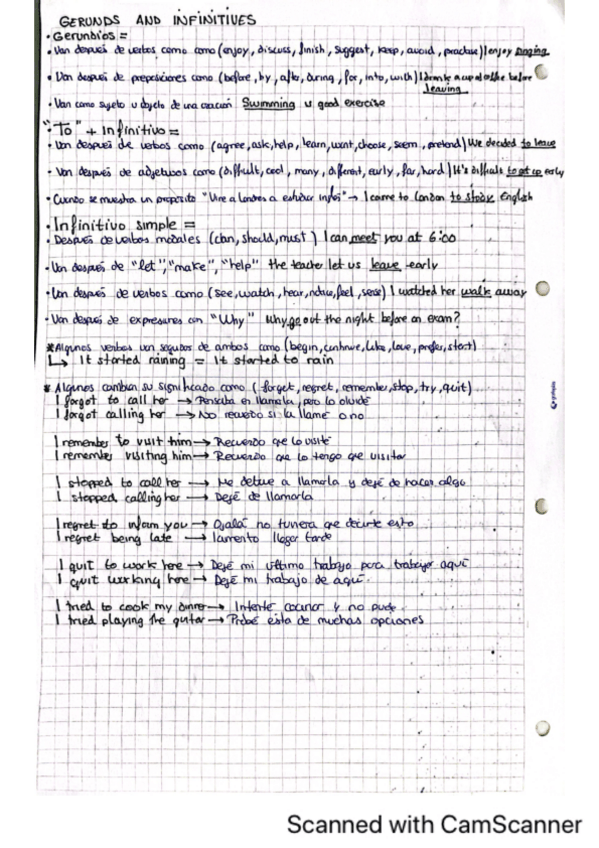 GERUNDS AND INFINITIVES
· Gerundios =
· Van después de verbos como como (enjoy, discuss, finish, suggest, keep, avoid, practise) I enjoy singing
· Van después de preposiciones como (before, by, after, during, for, into, with) I drink a cup of coffee before
leaving
· Van como sujeto u objeto de una oración Swimming is good exercise
· "To" + Infinitivo =
· Van después de verbos como (agree, ask, help, learn, want, choose, seem, pretend) We decided to leave
· Van después de adjetivos como (difficult, cool, many, different, early, far, hard) It's difficult to get up early
· Cuando se muestra un proposito "Vine a Londres a estudiar inglés" → I came to London to study English
· Infinitivo simple =
· Después de verbos modales (can, should, must) I can meet you at 6:00
· Van después de "let", "make", "help" the teacher let us leave early
· Van después de verbos como (see, watch, hear, notice, feel, sense) I watched her walk away
· Van después de expresiones con "Why" Why go out the night before an exam?
* Algunos verbos van seguidos de ambos como (begin, continue, like, love, prefer, start)
↳ It started raining = It started to rain
* Algunos cambian su significado como (forget, regret, remember, stop, try, quit)
I forgot to call her → Pensaba en llamarla, pero lo olvidé
I forgot calling her → No recuerdo si la llamé o no
I remember to visit him → Recuerdo que lo visité
I remember visiting him → Recuerdo que lo tengo que visitar
I stopped to call her → Me detuve a llamarla y dejé de hacer algo
I stopped calling her → Dejé de llamarla
I regret to inform you → Ojalá no tuviera que decirte esto
I regret being late → lamento llegar tarde
I quit to work here → Dejé mi ultimo trabajo para trabajar aquí
I quit working here → Dejé mi trabajo de aquí.
I tried to cook my dinner → Intenté cocinar y no pude.
I tried playing the guitar → Probé esta de muchas opciones
Scanned with CamScanner